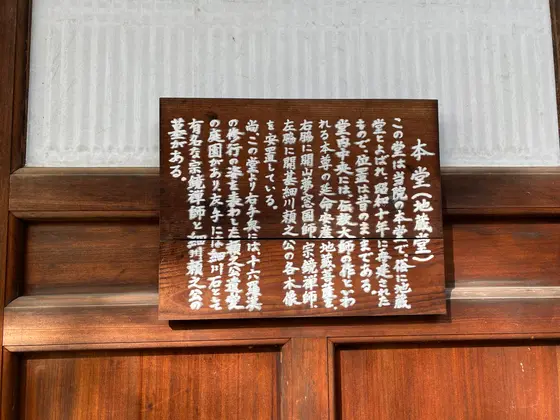 本堂(地蔵堂)
この堂は当院の本堂で、俗に地蔵
堂とよばれ、昭和十年に再建された
もので、位置は昔のままである。
堂内中央には、伝教大師の作といわ
れる本尊の延命安産地蔵菩薩を、
右脇に開山夢窓国師、宗鏡禅師、
左脇に開基細川頼之公の各木像
を安置している。
尚、この堂より右手奥には、十六羅漢
の修行の姿を表わした頼之公遺愛
の庭園があり、左手には細川石とそ
有名な宗鏡禅師と細川頼之公の
墓がある。